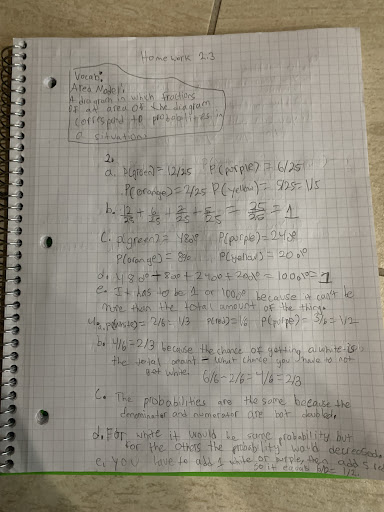 Homework 2.3
Vocab:
Area Model:
A diagram in which fractions
of an area of the diagram
correspond to probabilities in
a situation
2.
a. P(green)= 12/25 P(purple) = 6/25
P(orange)= 2/25 P(yellow) = 5/25= 1/5
b. 12/25 + 6/25 + 2/25 + 5/25 = 25/25 = 1
C. P(green) = 48% P(purple)= 24%
P(orange) = 8% P(yellow) = 20%
d. 48% + 8% + 24% + 20% = 100% = 1
e. It has to be 1 or 100% because it can't be
more than the total amount of the thing.
4. a. P(white)= 2/6 = 1/3 P(red)= 1/6 P(purple)= 3/6 = 1/2
b. 4/6 = 2/3 because the chance of getting a white is
the total amount - what chance you have to not
get white. 6/6 - 2/6 = 4/6 = 2/3
C. The probabilities are the same because the
denominator and numerator are bot doubled.
d. For white it would be same probability but
for the others the probability would decreased.
e. You have to add 1 white or purple, then add 5 red
so it equals 1/2.